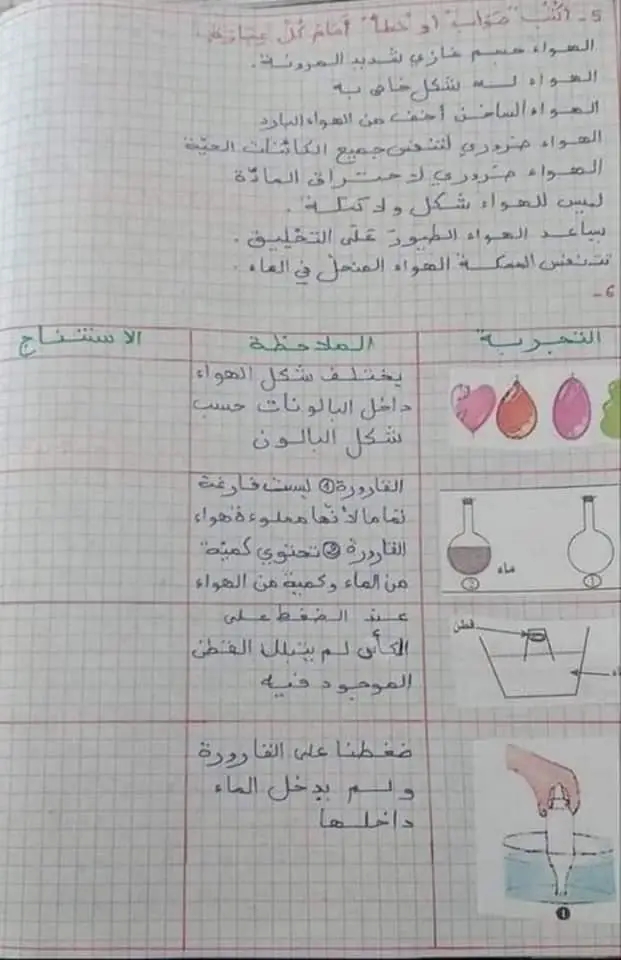 5- أكتُبْ "صَوَاب" أو "خطأ" أمَام كُلّ عِبَارَة.
الهواء جسم غازي شديد المرونة.
الهواء له شكل خاص به
الهواء الساخن أخف من الهواء البارد
الهواء ضروري لتنفس جميع الكائنات الحيّة
الهواء ضروري لاحتراق المادّة
ليس للهواء شكل ولا كتلة.
يساعد الهواء الطيور على التحليق.
تتنفس السمكة الهواء المنحلّ في الماء.
6-
التجربة الملاحظة الاستنتاج
يختلف شكل الهواء
داخل البالونات حسب
شكل البالون
القارورة ① ليست فارغة
تماما لأنّها مملوءة هواء
القارورة ② تحتوي كميّة
من الماء وكمية من الهواء
ماء
② ①
عند الضغط على
الكأس لم يتبلل القطن
الموجود فيه
قطن
ضغطنا على القارورة
ولم يدخل الماء
داخلها
❶